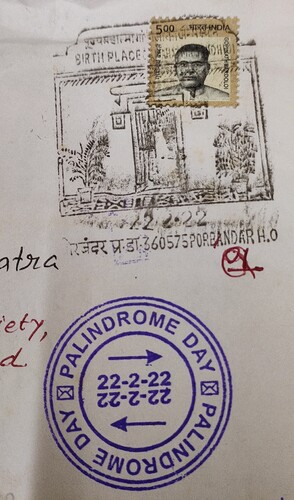 5.00 भारत INDIA
BIRTH PLACE
22-2-22
रबंदर प्र.डा. 360575 PORBANDAR H.O
atra
iety,
d.
PALINDROME DAY
22-2-22
22-2-22
PALINDROME DAY